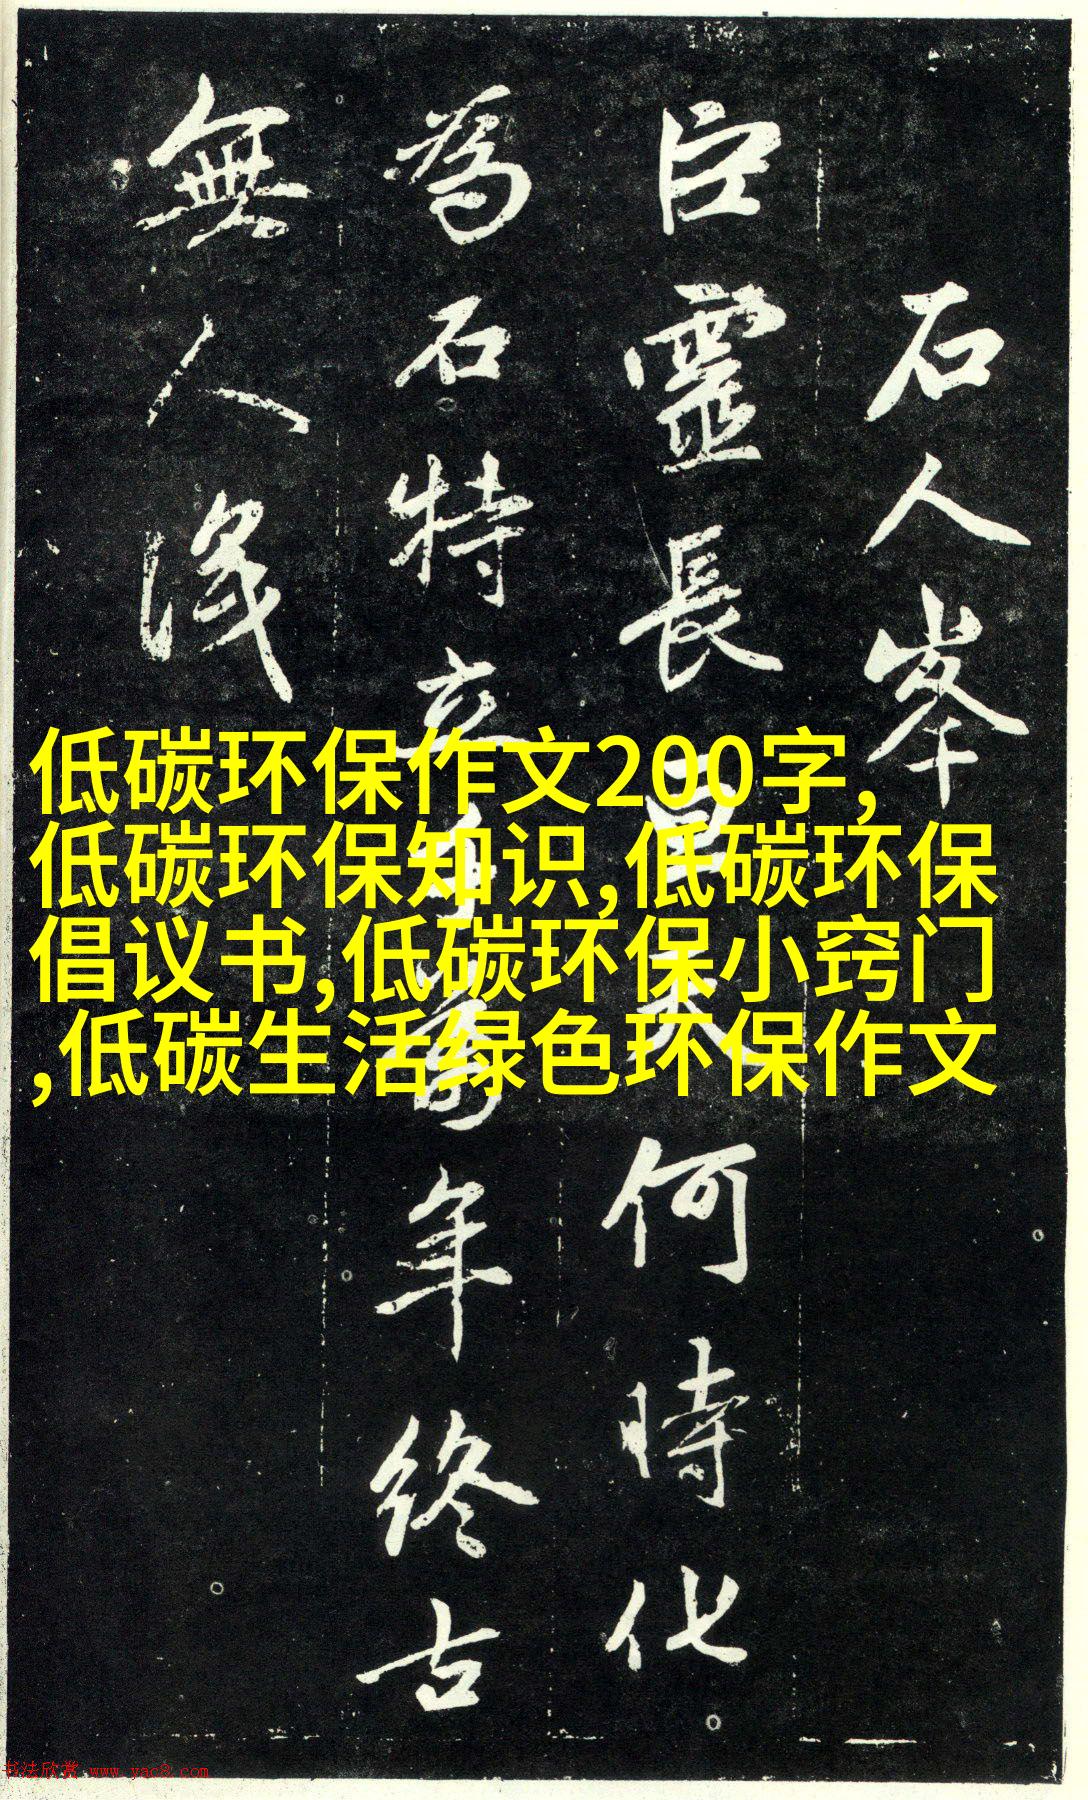 石人峯
巨靈長天何時化
為石特立萬年終古
無人識
低碳环保作文200字,
低碳环保知识,低碳环保
倡议书,低碳环保小窍门
,低碳生活绿色环保作文
书法欣赏 www.yac8.com